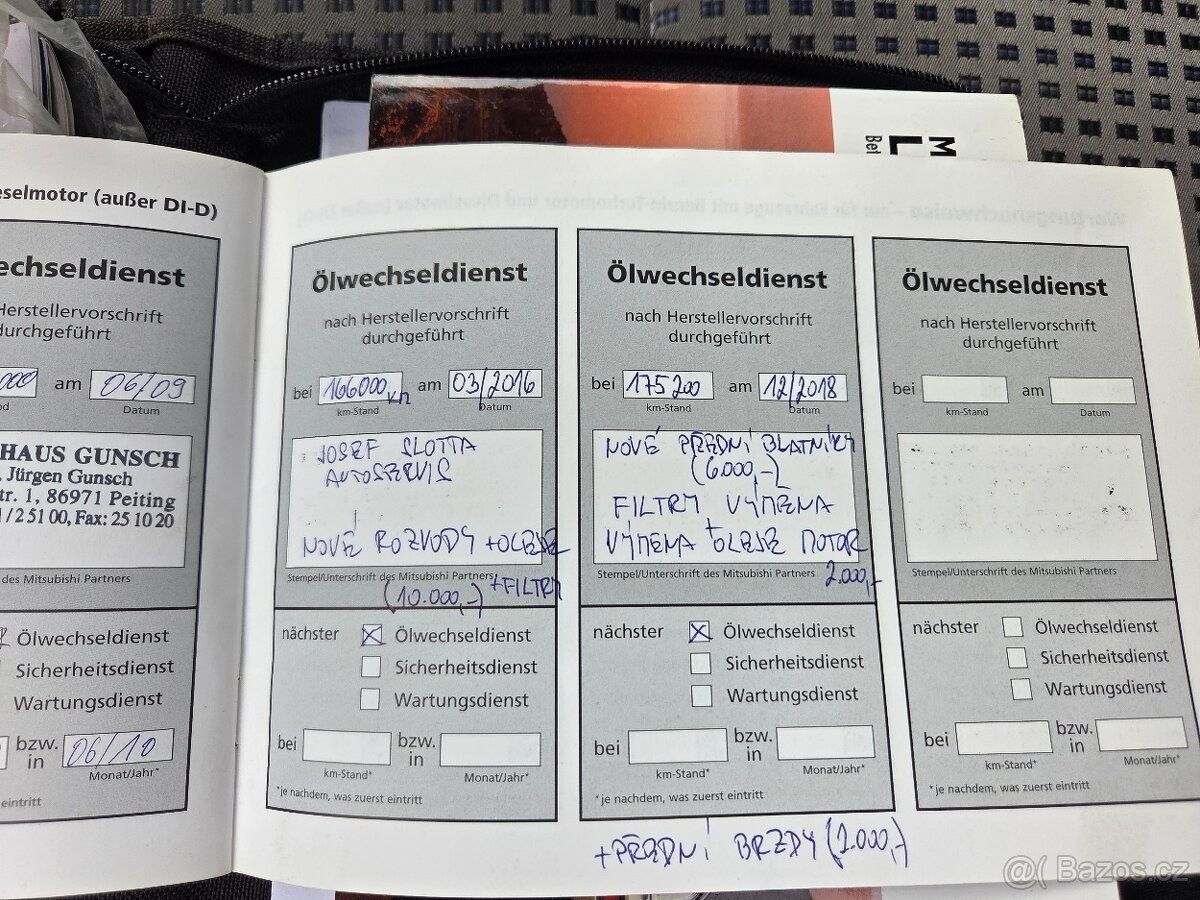 M
L
Bet
eselmotor (außer DI-D)
echseldienst
Herstellervorschrift
durchgeführt
000 am 06/09
Datum
HAUS GUNSCH
. Jürgen Gunsch
tr. 1, 86971 Peiting
1/2 51 00, Fax: 25 10 20
des Mitsubishi Partners
Ölwechseldienst
Sicherheitsdienst
Wartungsdienst
bzw. in 06/10
Monat/Jahr*
eintritt
Ölwechseldienst
nach Herstellervorschrift
durchgeführt
bei 166000 km am 03/2016
km-Stand Datum
JOSEF SLOTTA
AUTOSERVIS
NOVÉ ROZVODY + OLEJE
+ FILTRY
Stempel/Unterschrift des Mitsubishi Partners
(10.000,-)
nächster Ölwechseldienst
Sicherheitsdienst
Wartungsdienst
bei bzw. in
km-Stand* Monat/Jahr*
*je nachdem, was zuerst eintritt
Ölwechseldienst
nach Herstellervorschrift
durchgeführt
bei 175200 am 12/2018
km-Stand Datum
NOVÉ PŘEDNÍ BLATNÍKY
(6.000,-)
FILTRY VÝMENA
+
VÝMENA OLEJE MOTOR
2.000,-
Stempel/Unterschrift des Mitsubishi Partners
nächster Ölwechseldienst
Sicherheitsdienst
Wartungsdienst
bei bzw. in
km-Stand* Monat/Jahr*
*je nachdem, was zuerst eintritt
+ PŘEDNÍ BRZDY (2.000,-)
Ölwechseldienst
nach Herstellervorschrift
durchgeführt
bei am
km-Stand Datum
Stempel/Unterschrift des Mitsubishi Partners
nächster Ölwechseldienst
Sicherheitsdienst
Wartungsdienst
bei bzw. in
km-Stand* Monat/Jahr*
*je nachdem, was zuerst eintritt
Bazos.cz